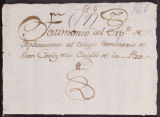 Testimonio del Expte. de
Aplicaciones al Colegio Seminario de
San Carlos de la Ciudad de la